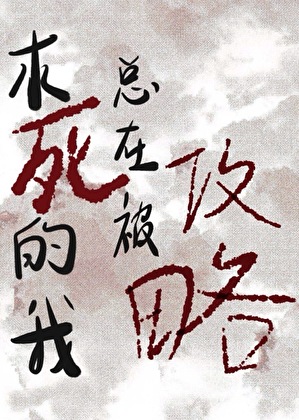 求死的我
总在被
攻略